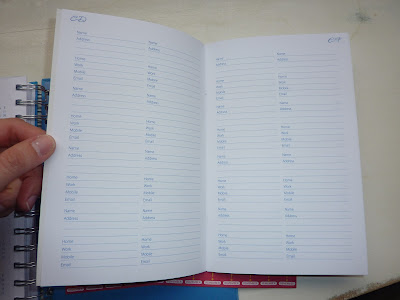 Name Name
Address Address
Home Home
Work Work
Mobile Mobile
Email Email
Name Name
Address Address
Home Home
Work Work
Mobile Mobile
Email Email
Name Name
Address Address
Home Home
Work Work
Mobile Mobile
Email Email
Name Name
Address Address
Home Home
Work Work
Mobile Mobile
Email Email
Name Name
Address Address
Home Home
Work Work
Mobile Mobile
Email Email
Name Name
Address Address
Home Home
Work Work
Mobile Mobile
Email Email
Name Name
Address Address
Home Home
Work Work
Mobile Mobile
Email Email
Name Name
Address Address
Home Home
Work Work
Mobile Mobile
Email Email